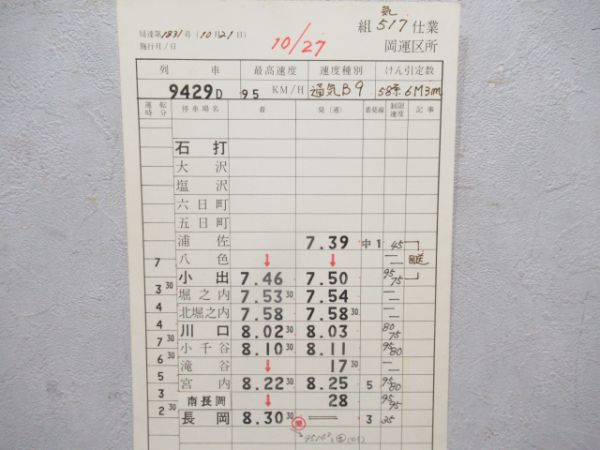 局達第1831号(10月21日)
施行月/日
10/27
気し
組 517 仕業
岡運区所
列 車 最高速度 速度種別 けん引定数
9429D 95 KM/H 通気B9 6M3m
運転時分 停車場名 着 発(通) 着発線 制限速度 記事
石打
大沢
塩沢
六日町
五日町
浦佐 7.39 中1 45
7 八色 ↓ ↓ —
小出 7.46 7.50 95 75
3 30 堀之内 7.53 30 7.54 —
4 北堀之内 7.58 7.58 30 —
4 川口 8.02 30 8.03 80 75
7 小千谷 8.10 30 8.11 95 80
6 30 滝谷 ↓ 17 30 —
5 宮内 8.22 30 8.25 5 95 80
3 南長岡 ↓ 28 95 95
2 30 長岡 8.30 30 — 3 35